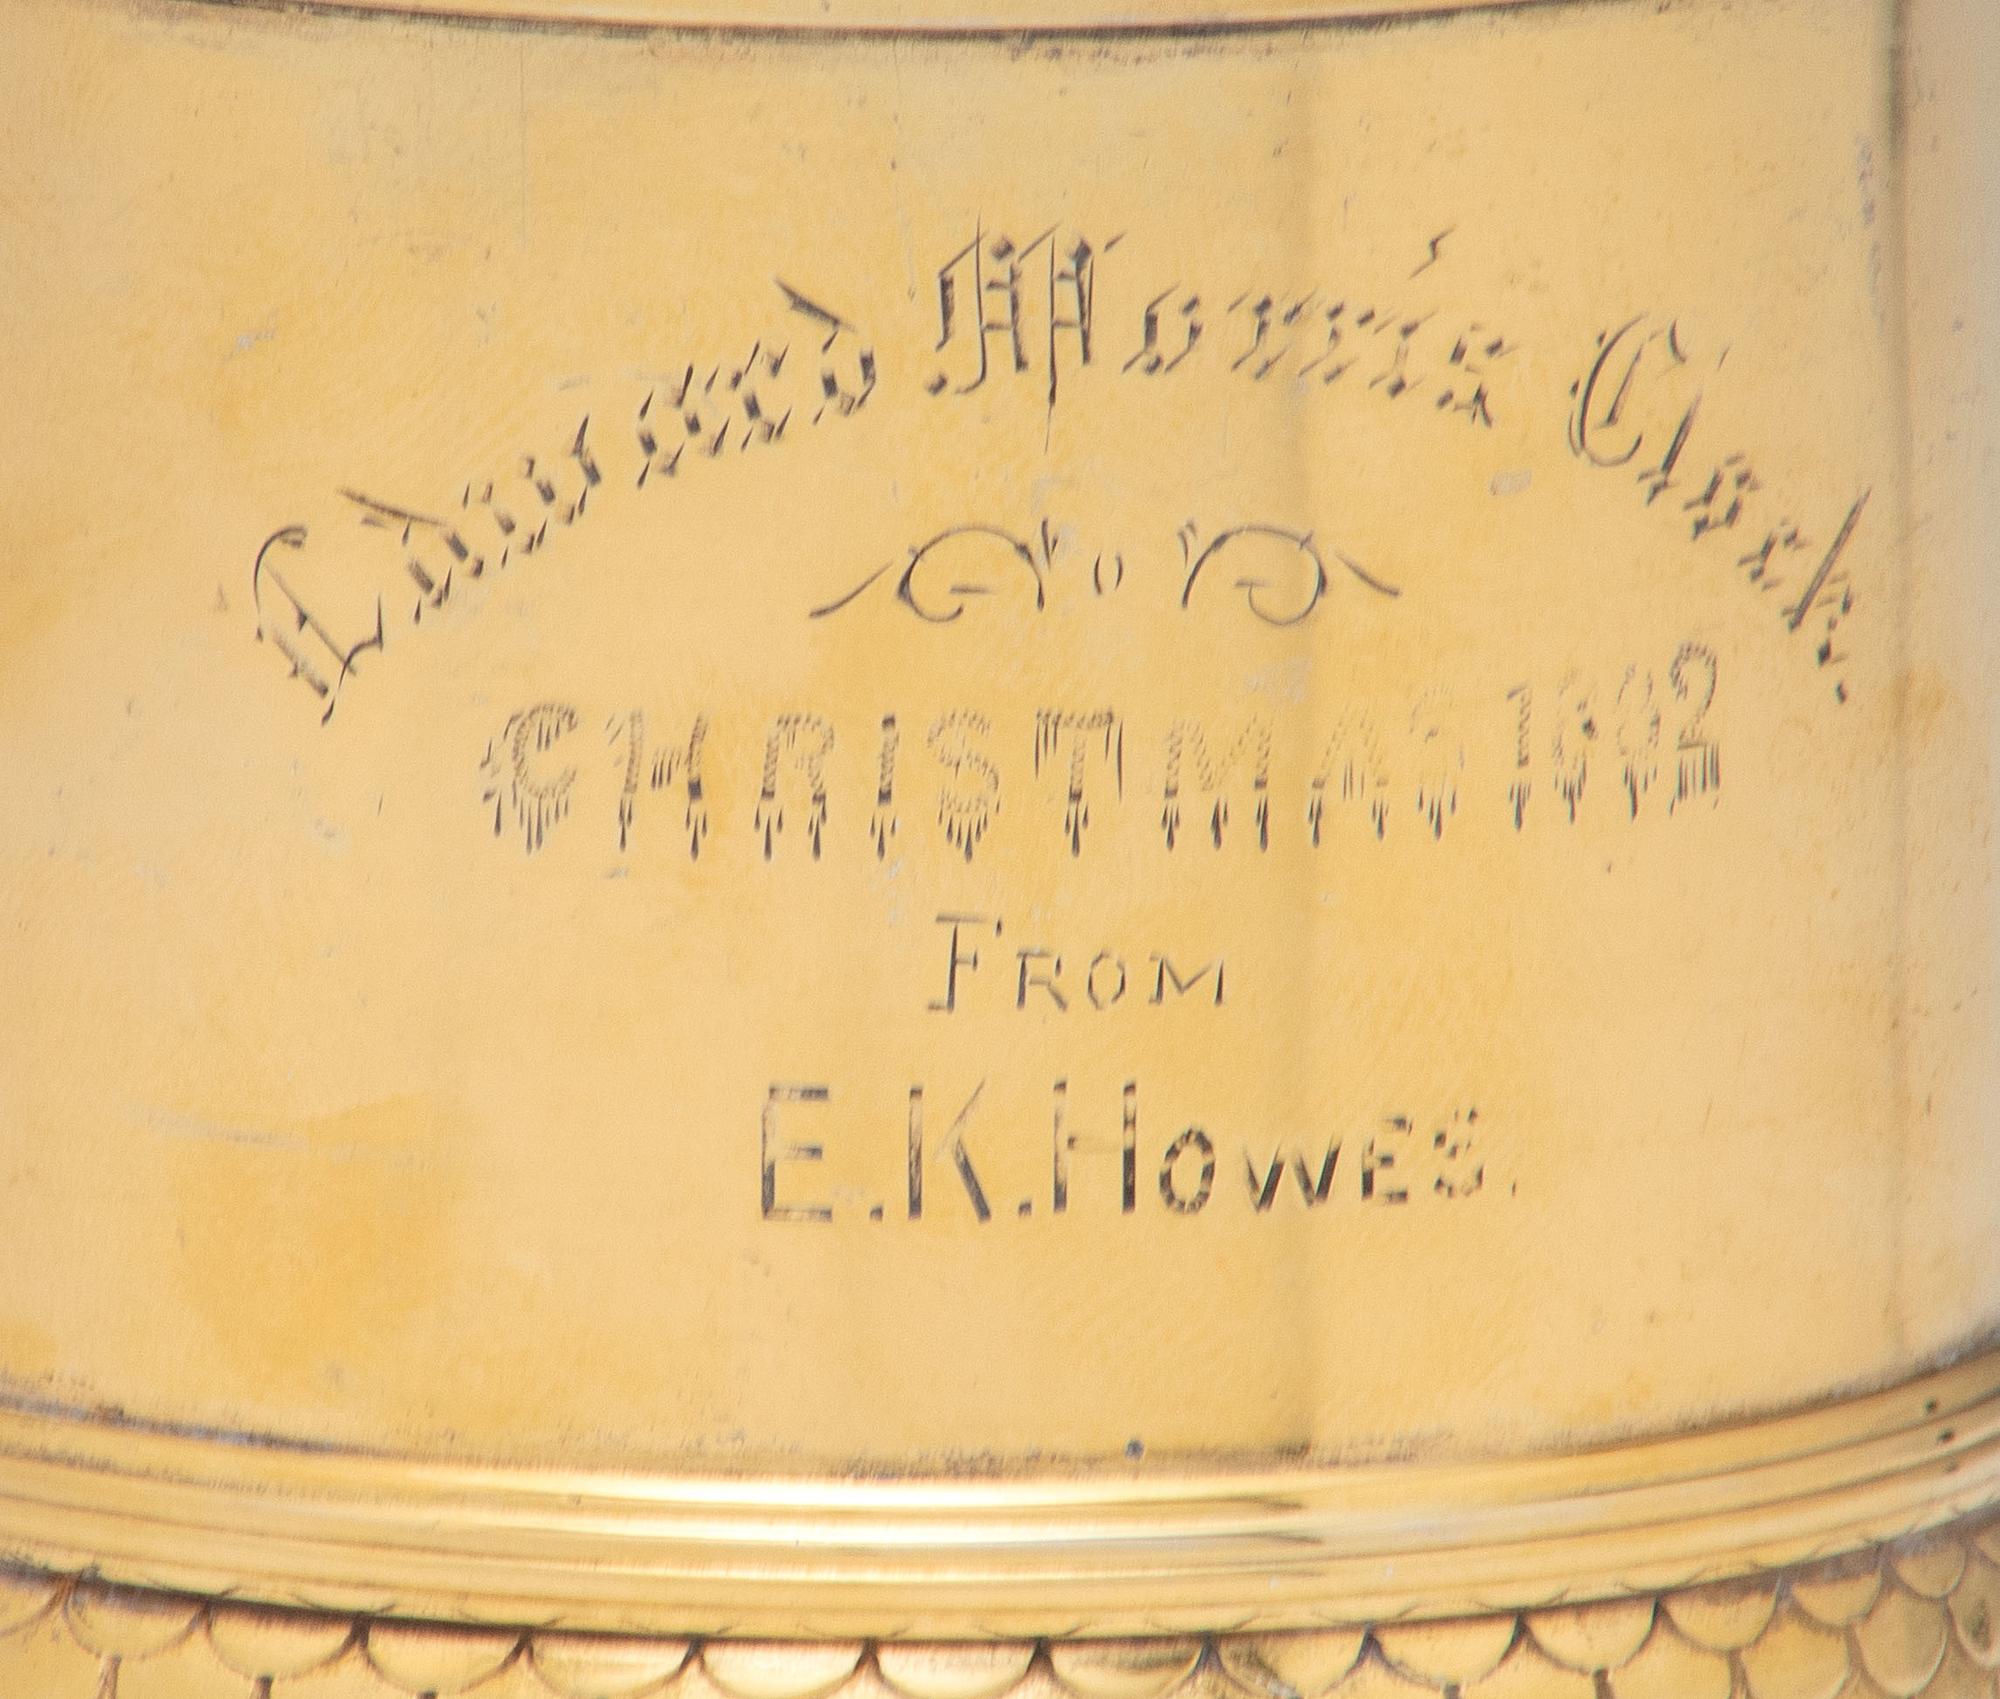 Edward Morris Clark.
CHRISTMAS 1882
FROM
E.K.HOWES.